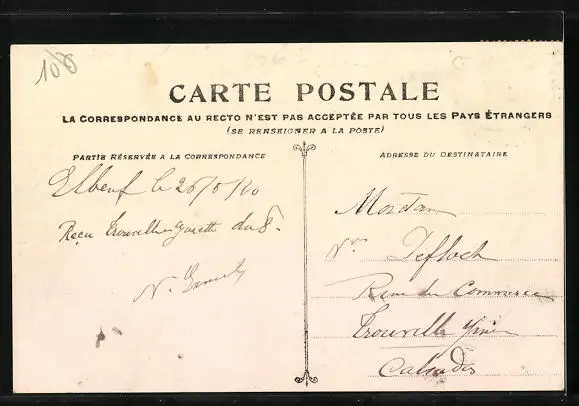 106
CARTE POSTALE
LA CORRESPONDANCE AU RECTO N'EST PAS ACCEPTÉE PAR TOUS LES PAYS ÉTRANGERS
(SE RENSEIGNER A LA POSTE)
PARTIE RÉSERVÉE A LA CORRESPONDANCE
Elbeuf le 26/8/
Reçu Trouville gazette du 8.
N.
ADRESSE DU DESTINATAIRE
Rue du Commerce
Trouville
Calvados